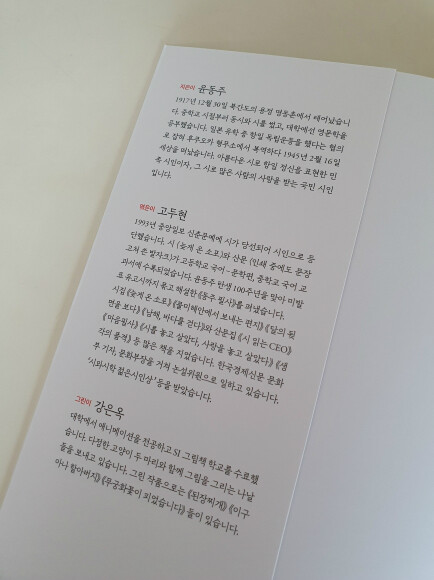 지은이 윤동주
1917년 12월 30일 북간도의 용정 명동촌에서 태어났습니
다. 중학교 시절부터 동시와 시를 썼고, 대학에선 영문학을
공부했습니다. 일본 유학 중 항일 독립운동을 했다는 혐의
로 잡혀 후쿠오카 형무소에서 복역하다 1945년 2월 16일
세상을 떠났습니다. 아름다운 시로 항일 정신을 표현한 민
족 시인이자, 그 시로 많은 사람의 사랑을 받는 국민 시인
입니다.
엮은이 고두현
1993년 중앙일보 신춘문예에 시가 당선되어 시인으로 등
단했습니다. 시 〈늦게 온 소포〉와 산문 〈인쇄 중에도 문장
고쳐 쓴 발자크〉가 고등학교 국어-문학편, 중학교 국어 교
과서에 수록되었습니다. 윤동주 탄생 100주년을 맞아 미발
표 유고시까지 묶고 해설한 《동주 필사》를 펴냈습니다.
시집 《늦게 온 소포》 《물미해안에서 보내는 편지》 《달의 뒷
면을 보다》 《남해, 바다를 걷다》와 산문집 《시 읽는 CEO》
《마음필사》 《시를 놓고 살았다, 사랑을 놓고 살았다》 《생
각의 품격》 등 많은 책을 지었습니다. 한국경제신문 문화
부 기자, 문화부장을 거쳐 논설위원으로 일하고 있습니다.
'시와시학 젊은시인상' 등을 받았습니다.
그린이 강은옥
대학에서 애니메이션을 전공하고 SI 그림책 학교를 수료했
습니다. 다정한 고양이 두 마리와 함께 그림을 그리는 나날
들을 보내고 있습니다. 그린 작품으로는 《된장찌개》 《이구
아나 할아버지》 《무궁화꽃이 되었습니다》 들이 있습니다.